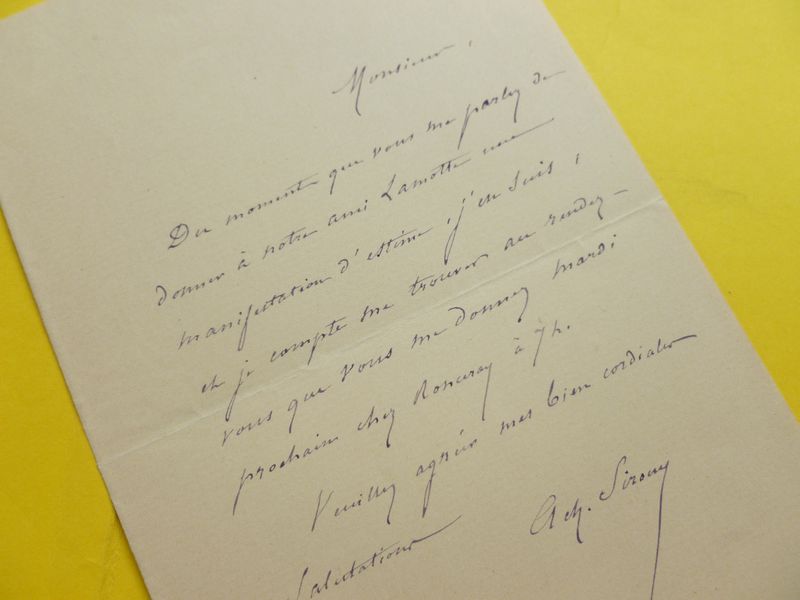 Monsieur,
Du moment que vous me parlez de
donner à notre ami Lamotte une
manifestation d'estime, j'en suis,
et je compte me trouver au rendez-
vous que vous me donnez mardi
prochain chez Ronceray à 7h.
Veuillez agréer mes bien cordiales
Salutations
Ach. Sirouy